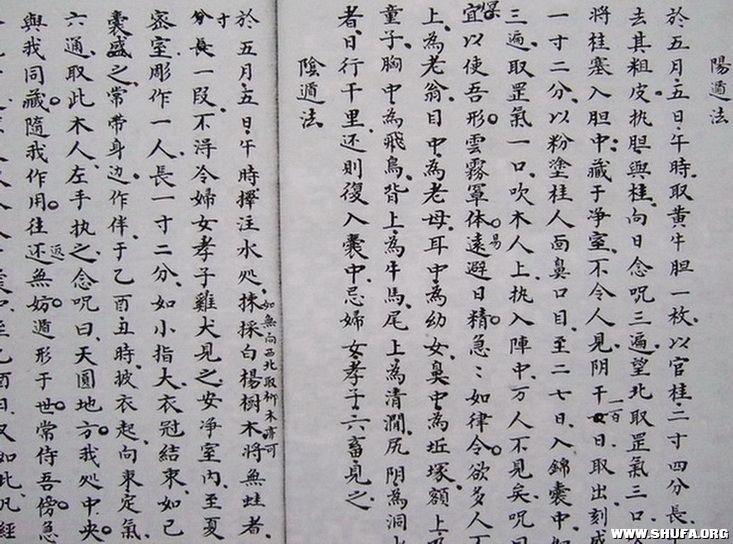 陽遁法
於五月五日午時取黃牛胆一枚以官桂二寸四分長
去其粗皮执胆與桂向日念呪三遍望北取罡氣三口
將桂塞入胆中藏于净室不令人見阴干一百日取出刻成
一寸二分以粉塗桂人面鼻口目至二七日入錦囊中如
三遍取罡氣一口吹木人上执入陣中万人不見矣呪曰
宜以使吾形雲霧罩体易遠避日精急:如律令欲多人
上為老翁目中為老母耳中為幼女鼻中為坵塚額上
童子胸中為飛鳥背上為牛馬尾上為清澗尻阴為洞
者日行千里还則復入囊中忌婦女孝子六畜見之
陰遁法
於五月五日午時擇注水处揀採白楊樹木將無蛀者
如無向西北取柳木亦可
寸分長一段不淂令婦女孝子雞犬見之安凈室內至夏
密室彫作一人長一寸二分如小指大衣冠結束如己
囊盛之常带身边作伴于乙酉丑時披衣起向東定氣
六通取此木人左手执之念呪曰天圓地方我处中央
與我同藏隨我作用往还返無妨遁形于世常侍吾傍急
WWW.SHUFA.ORG